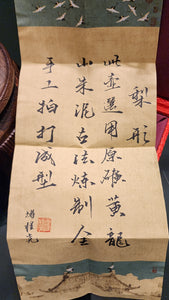 梨形
此壶選用原礦黃龍
山朱泥古法煉制全
手工拍打成型